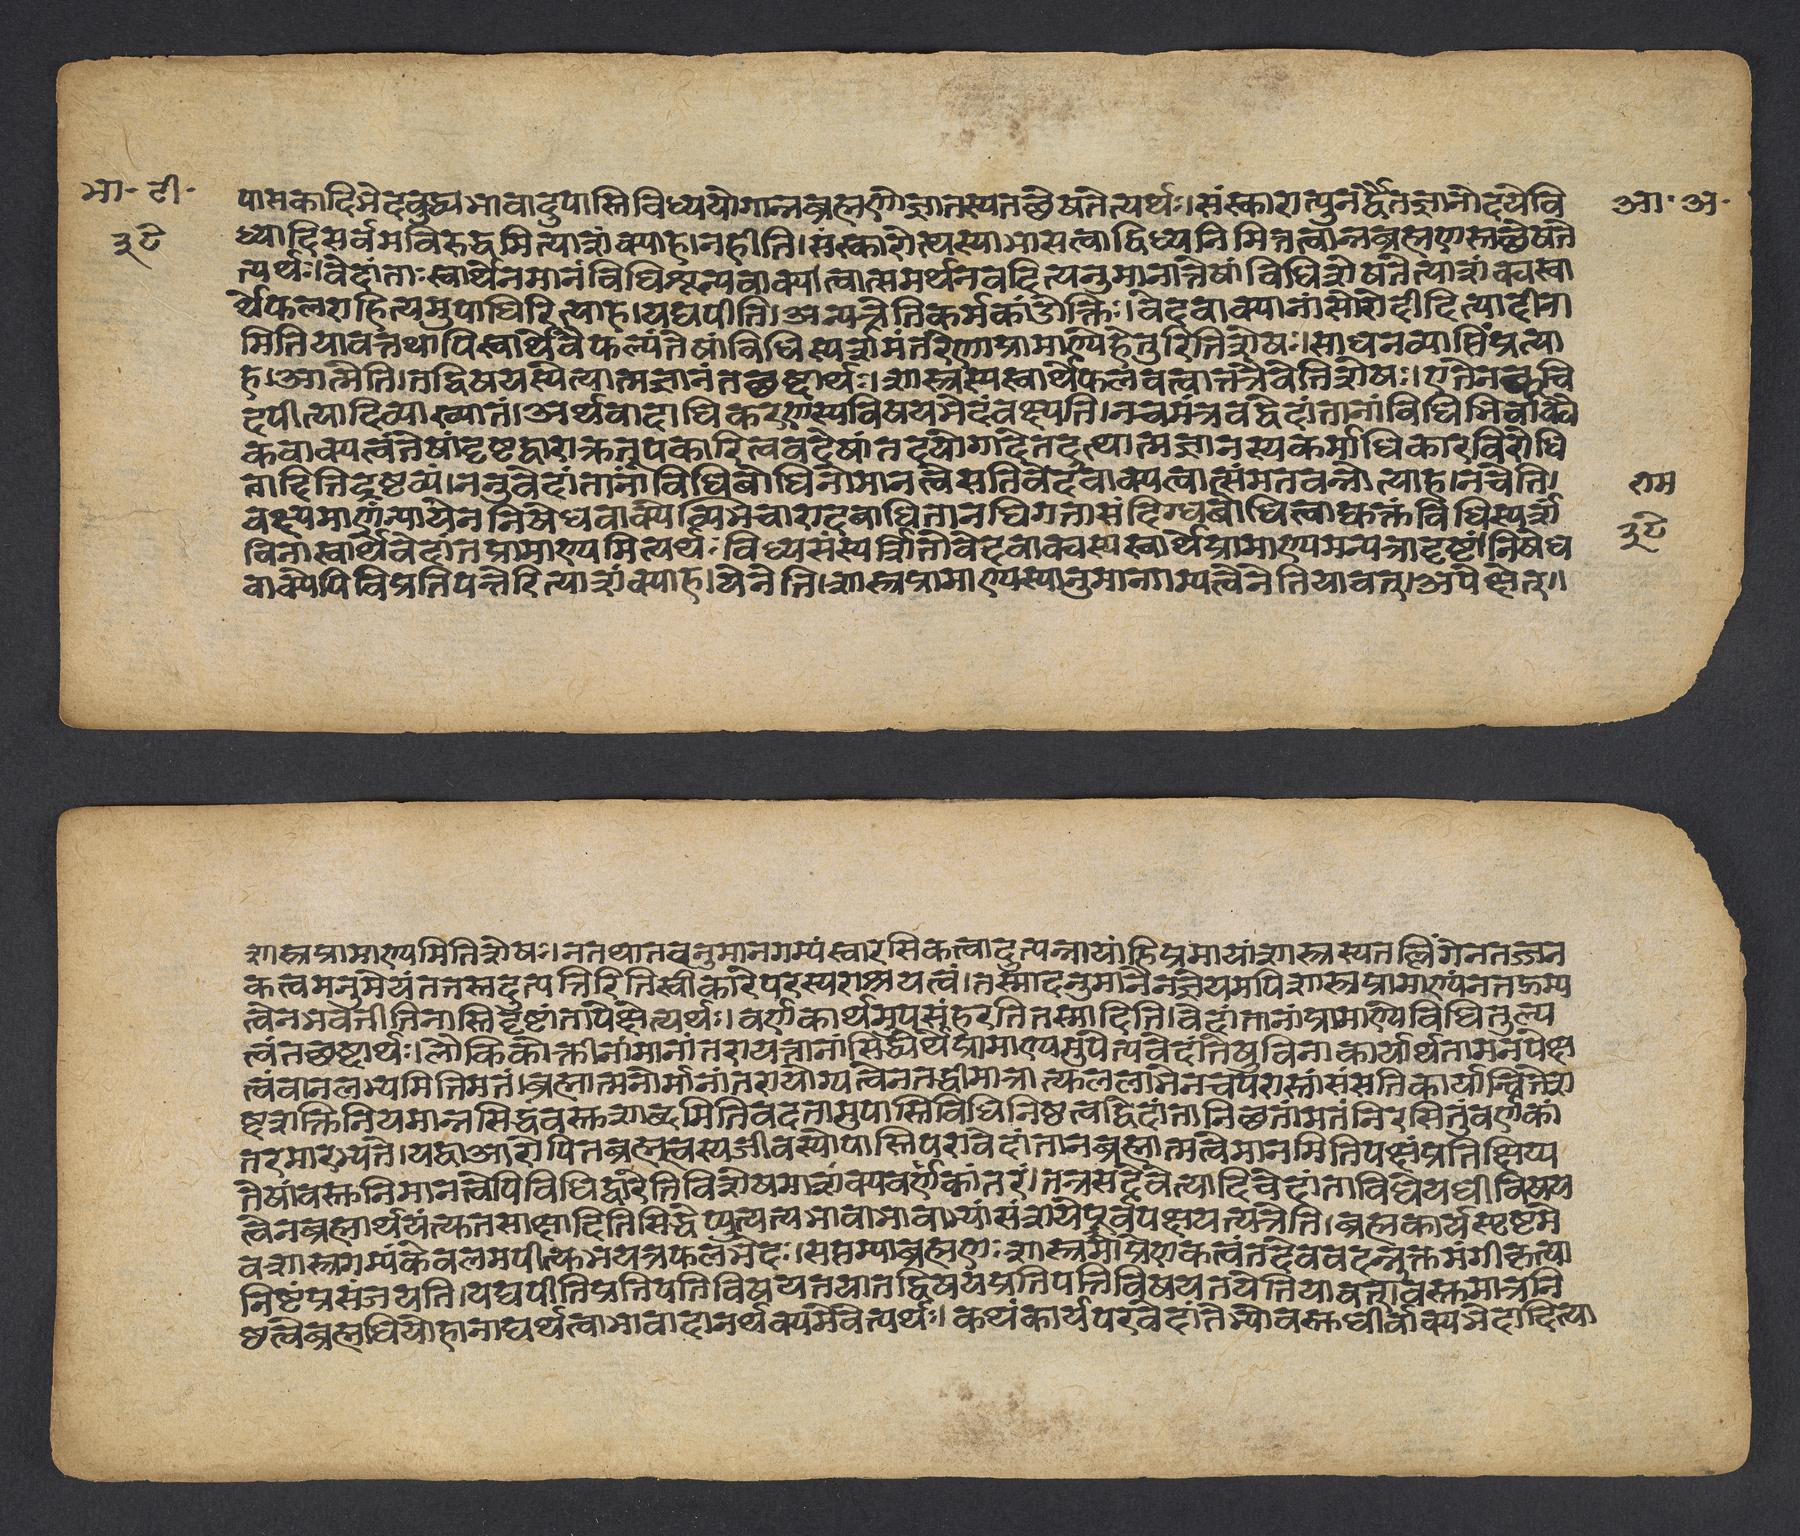 भा॰ टी॰
३९
पासकादिभेदबुद्ध्यभावादुपास्तिविध्ययोगान्नब्रह्मणोज्ञातस्यतच्छेषतेत्यर्थः। संस्कारात्पुनर्द्वैतज्ञानोदयेवि
ध्यादिसर्वमविरुद्धमित्याशंक्याह। नहीति। संस्कारोत्थस्याभासत्वाद्विध्यनिमित्तत्वान्नब्रह्मणस्तच्छेषते
त्यर्थः। वेदांताःस्वार्थेनमानंविधिशून्यवाक्यात्वात्समर्थनवदित्यनुमानात्तेषांविधिशेषतेत्याशंक्यस्वा
र्थेफलराहित्यमुपाधिरित्याह। यद्यपीति। अन्यत्रेतिकर्मकांडोक्तिः। वेदवाक्यानांसोरोदीदित्यादीना
मितियावत्तथापिस्वार्थेवैफल्यंतेषांविधिस्पर्शमंतरेणाप्रामाण्येहेतुरितिशेषः। साधनव्याप्तिंप्रत्या
ह। आत्मेति। तद्विषयस्येत्यात्मज्ञानंतच्छब्दार्थः। शास्त्रस्यस्वार्थेफलवत्वात्तत्रैवेतिशेषः। एतेनक्वचि
दपीत्यादिव्याख्यातं। अर्थवादाधिकरणस्यविषयभेदंवक्ष्यति। नचमंत्रवद्वेदांतानांविधिभिर्वाक्यै
कवाक्यत्वंतेषांदृष्टद्वाराक्रतूपकारित्ववदेषांतदयोगादेतदुत्थात्मज्ञानस्यकर्माधिकारविरोधि
तादितिद्रष्टव्यं। ननुवेदांतानांविधिबोधिनोमानत्वेसतिवेदवाक्यत्वात्संमतवन्नेत्याह। नचेति।
वक्ष्यमाणन्यायेननिषेधवाक्येव्यभिचारादबाधितानधिगतासंदिग्धबोधित्वाद्युक्तंविधिस्पर्शं
विनास्वार्थेवेदांतप्रामाण्यमित्यर्थः विध्यसंस्पर्शिनोवेदवाक्यस्यस्वार्थेप्रामाण्यमन्यत्रादृष्टं। निषेध
वाक्येपिविप्रतिपत्तेरित्याशंक्याह। येनेति। शास्त्रप्रामाण्यस्यानुमानगम्यत्वेनेतियावत्। अपेक्षेत॥
आ॰ अ॰
राम
३९
शास्त्रप्रामाण्यमितिशेषः। नतथातदनुमानगम्यंस्वारसिकत्वादुत्पन्नायांहिप्रमायांशास्त्रस्यतल्लिंगेनतज्जन
कत्वमनुमेयंततस्तदुत्पत्तिरितिस्वीकारेपरस्पराश्रयत्वं। तस्मादनुमानेनज्ञेयमपिशास्त्रप्रामाण्यंनतद्गम्य
त्वेनभवेत्तीतिनास्तिदृष्टांतापेक्षेत्यर्थः। वर्णकार्थमुपसंहरतितस्मादिति। वेदांतानांप्रामाण्येविधितुल्य
त्वंतच्छब्दार्थः। लौकिकोक्तीनांमानांतरायत्तानांसिद्धेर्थेप्रामाण्यमुपेत्यवेदांतेषुविनाकार्यार्थतामनपेक्ष
त्वंवानलभ्यमितिमतं। ब्रह्मात्मनोर्मानांतरायोग्यत्वेनतद्धीमात्रात्फललाभेनचपरास्तांसंसतिकार्यान्वितेश
ब्दशक्तिनियमान्नसिद्धवस्तुशाब्दमितिवदतामुपास्तिविधिनिष्ठत्वंवेदांतानिच्छतांमतंनिरसितुंवर्णकां
तरमारभ्यते। यद्वाआरोपितब्रह्मत्वस्यजीवस्योपास्तिपरावेदांतानब्रह्मात्मत्वेमानमितिपक्षंप्रतिक्षिप्य
तेषांवस्तुनिमानत्वेपिविधिद्वारेतिविशेषमाशंक्यवर्णकांतरं। तत्रसदेवेत्यादिवेदांताविधेयधीविषय
त्वेनब्रह्मार्थयंत्युतसाक्षादितिसिद्धेप्युत्पत्यभावाभावाभ्यांसंशयेपूर्वपक्षयत्यत्रेति। ब्रह्मकार्यस्पृष्टमे
वशास्त्रगम्यंकेवलमपीत्युभयत्रफलभेदः। सप्तम्याब्रह्मणःशास्त्रप्रमेयकत्वंतदेववदन्नुक्तमंगीकृत्या
निष्टंप्रसंजयति। यद्यपीतिप्रतिपत्तिविषयतयातद्विषयप्रतिपत्तिविषयतयेतियावत्। वस्तुमात्रनि
ष्ठत्वेब्रह्मधियोहानाद्यर्थत्वाभावादानर्थक्यमेवेत्यर्थः। कथंकार्यपरवेदांतेभ्योवस्तुधीर्वाक्यभेदादित्या